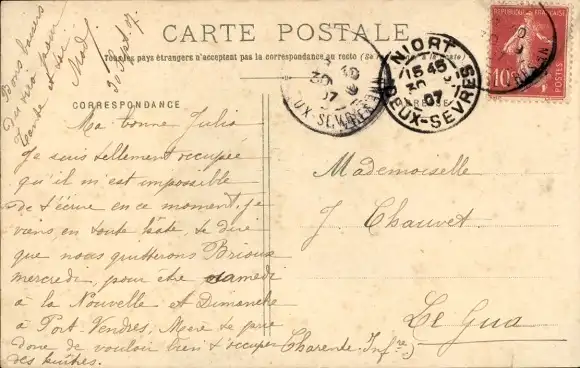 CARTE POSTALE
Tous les pays étrangers n'acceptent pas la correspondance au recto (Se
CORRESPONDANCE
ADRESSE
NIORT
15 45
30
07
DEUX-SEVRES
30
07
REPUBLIQUE FRANÇAISE
10
POSTES
Bons baisers
du
tante et
Mad
30 Sept. 07.
Ma bonne Julia
Je suis tellement occupée
qu'il m'est impossible
de t'écrire en ce moment, je
viens en toute hâte, te dire
que nous quitterons Brioux
mercredi, pour être samedi
à la Nouvelle et Dimanche
à Port-Vendres, Mère te prie
donc de vouloir bien t'occuper
des huîtres.
Mademoiselle
J. Chauvet
Le Gua
Charente Infre)